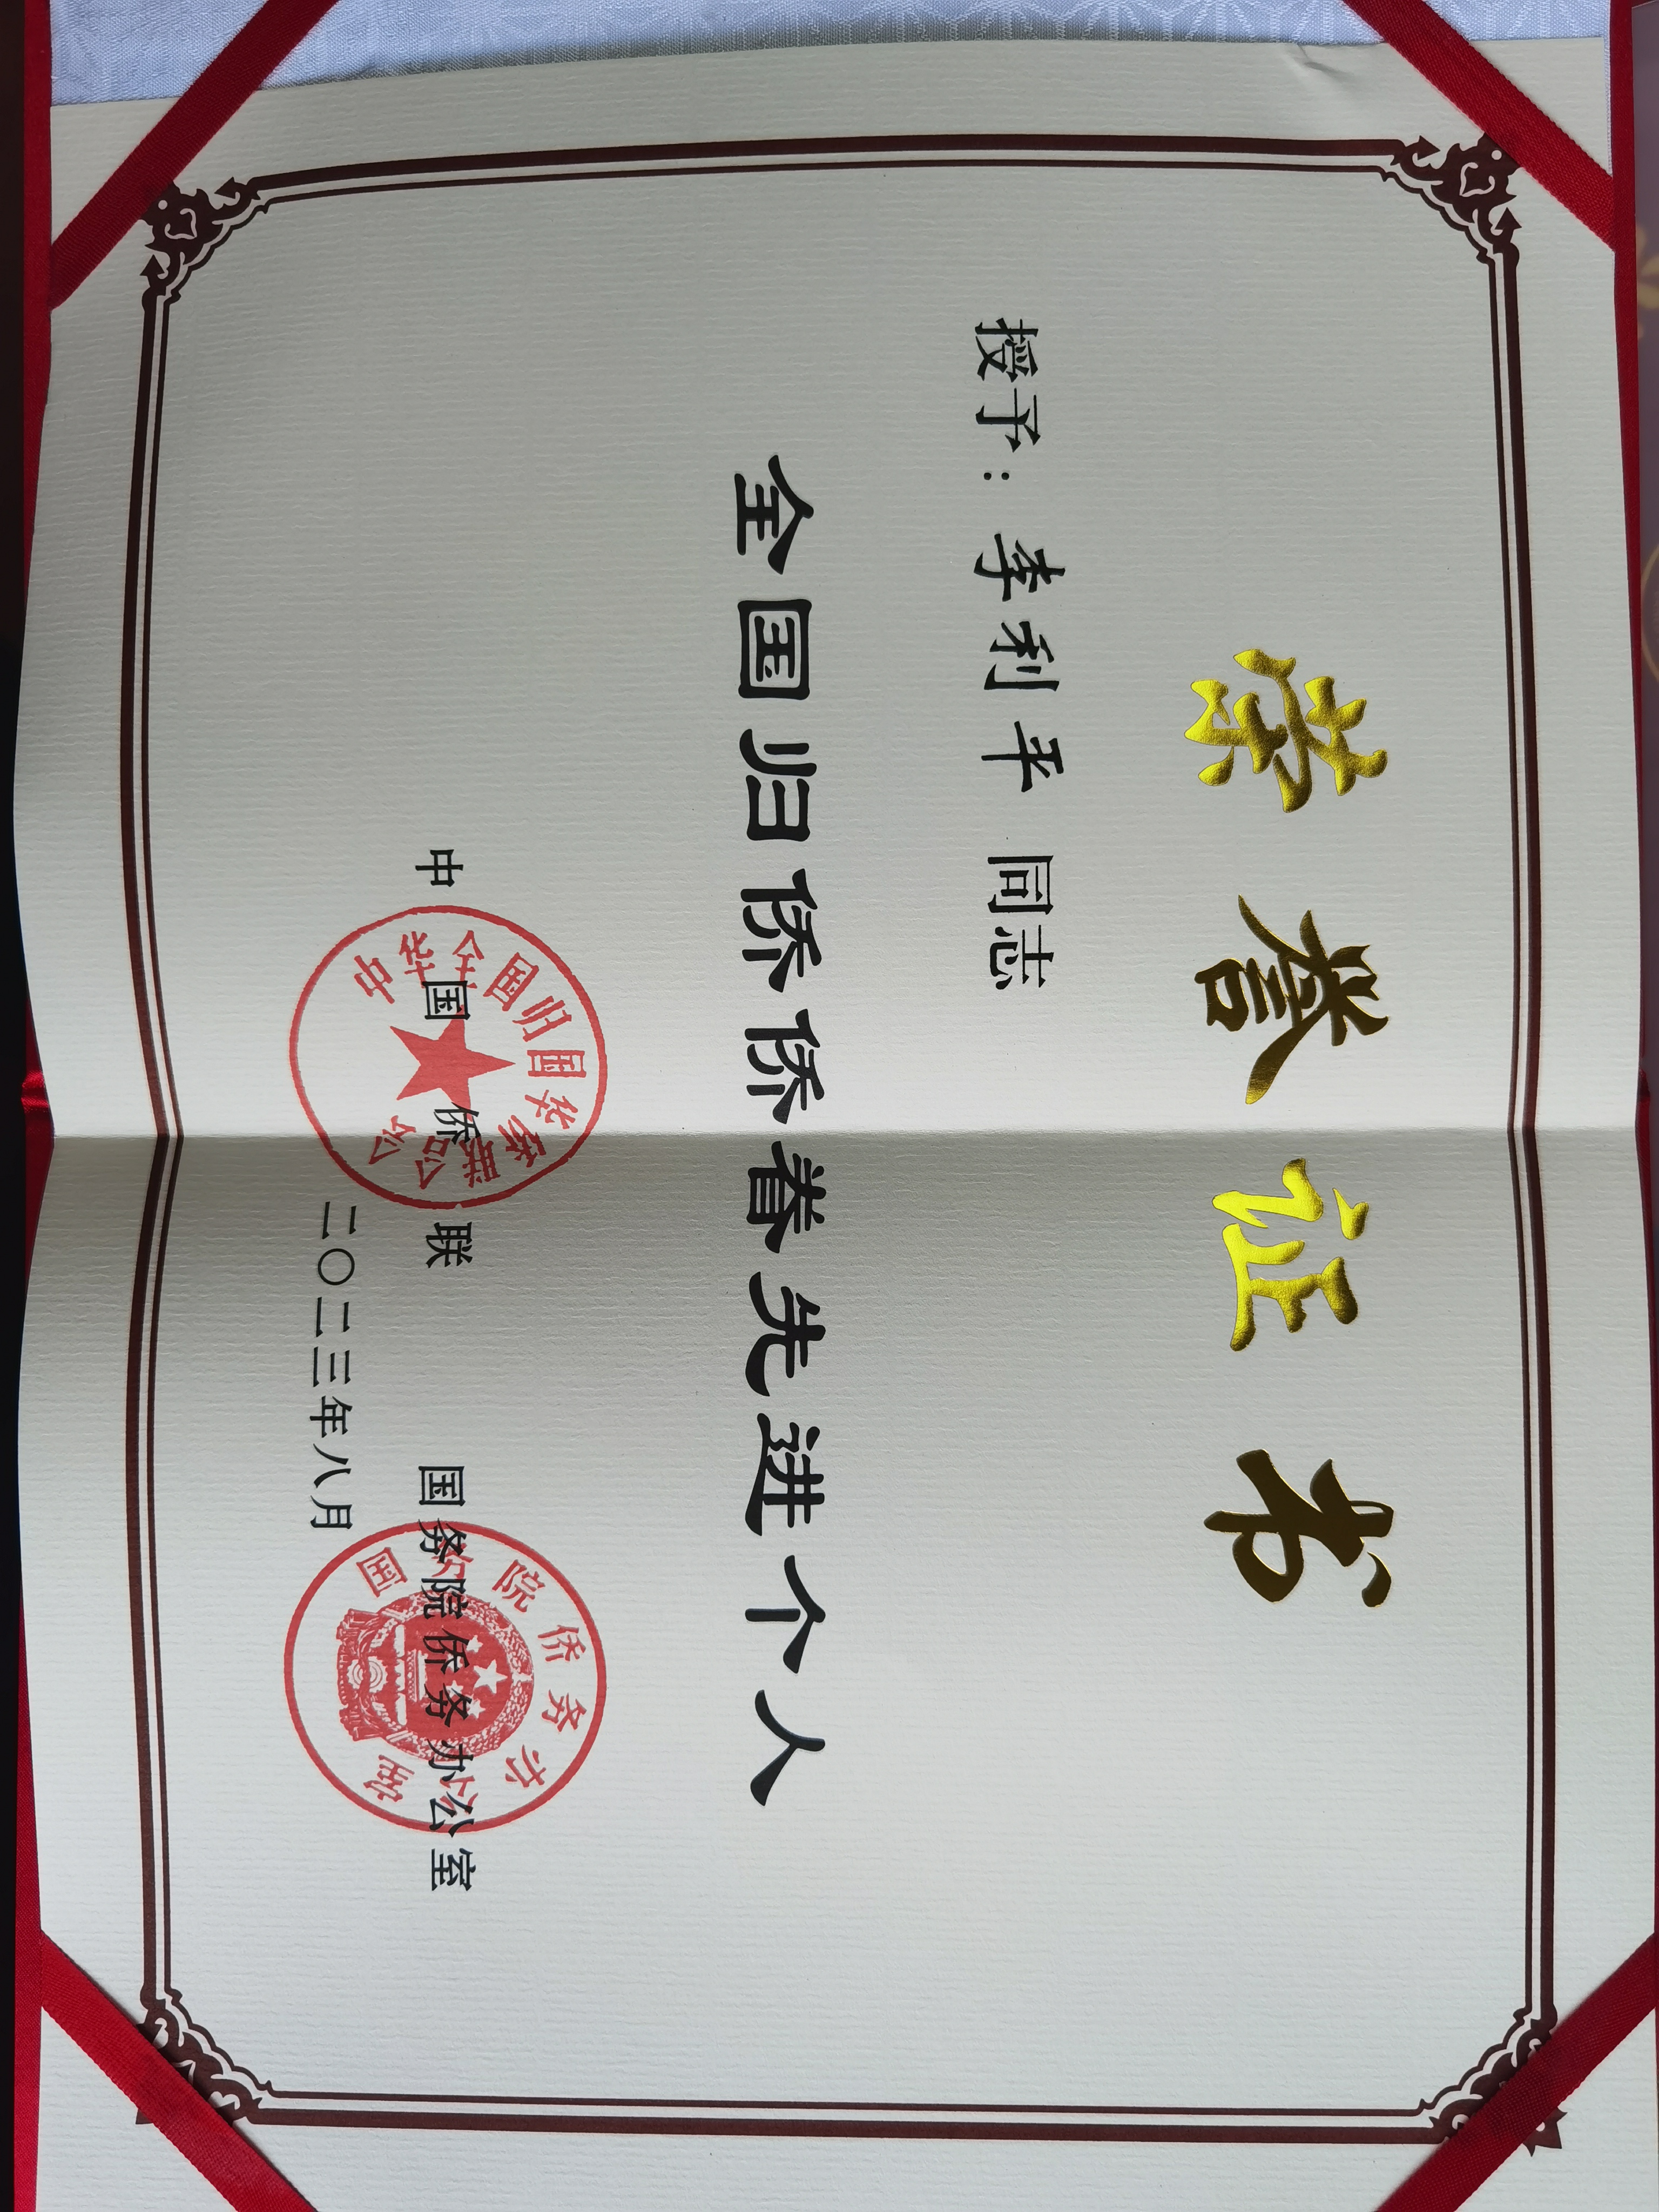 荣誉证书
授予：李利平 同志
全国归侨侨眷先进个人
中国侨联 国务院侨务办公室
二〇二三年八月
中华全国归国华侨联合会
国务院侨务办公室